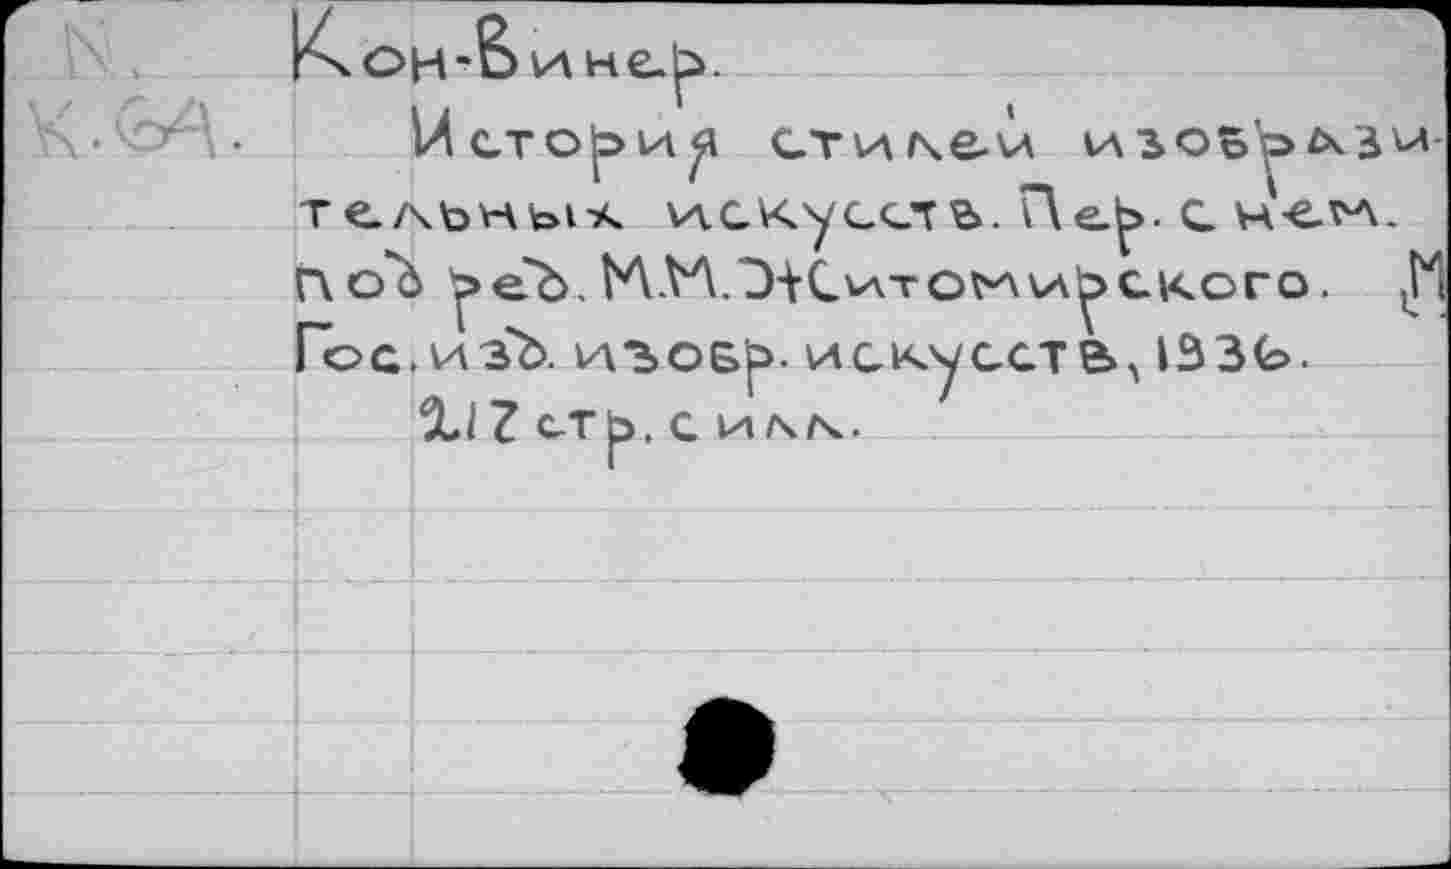 N.
Кон-Винер.
К.6А.
История стилей изобрази
тельных искусств. Пер. с нем.
под ред. М.М.Житомирского. М
Гос. изд. изобр. искусств, 1936.
217 стр. с илл.